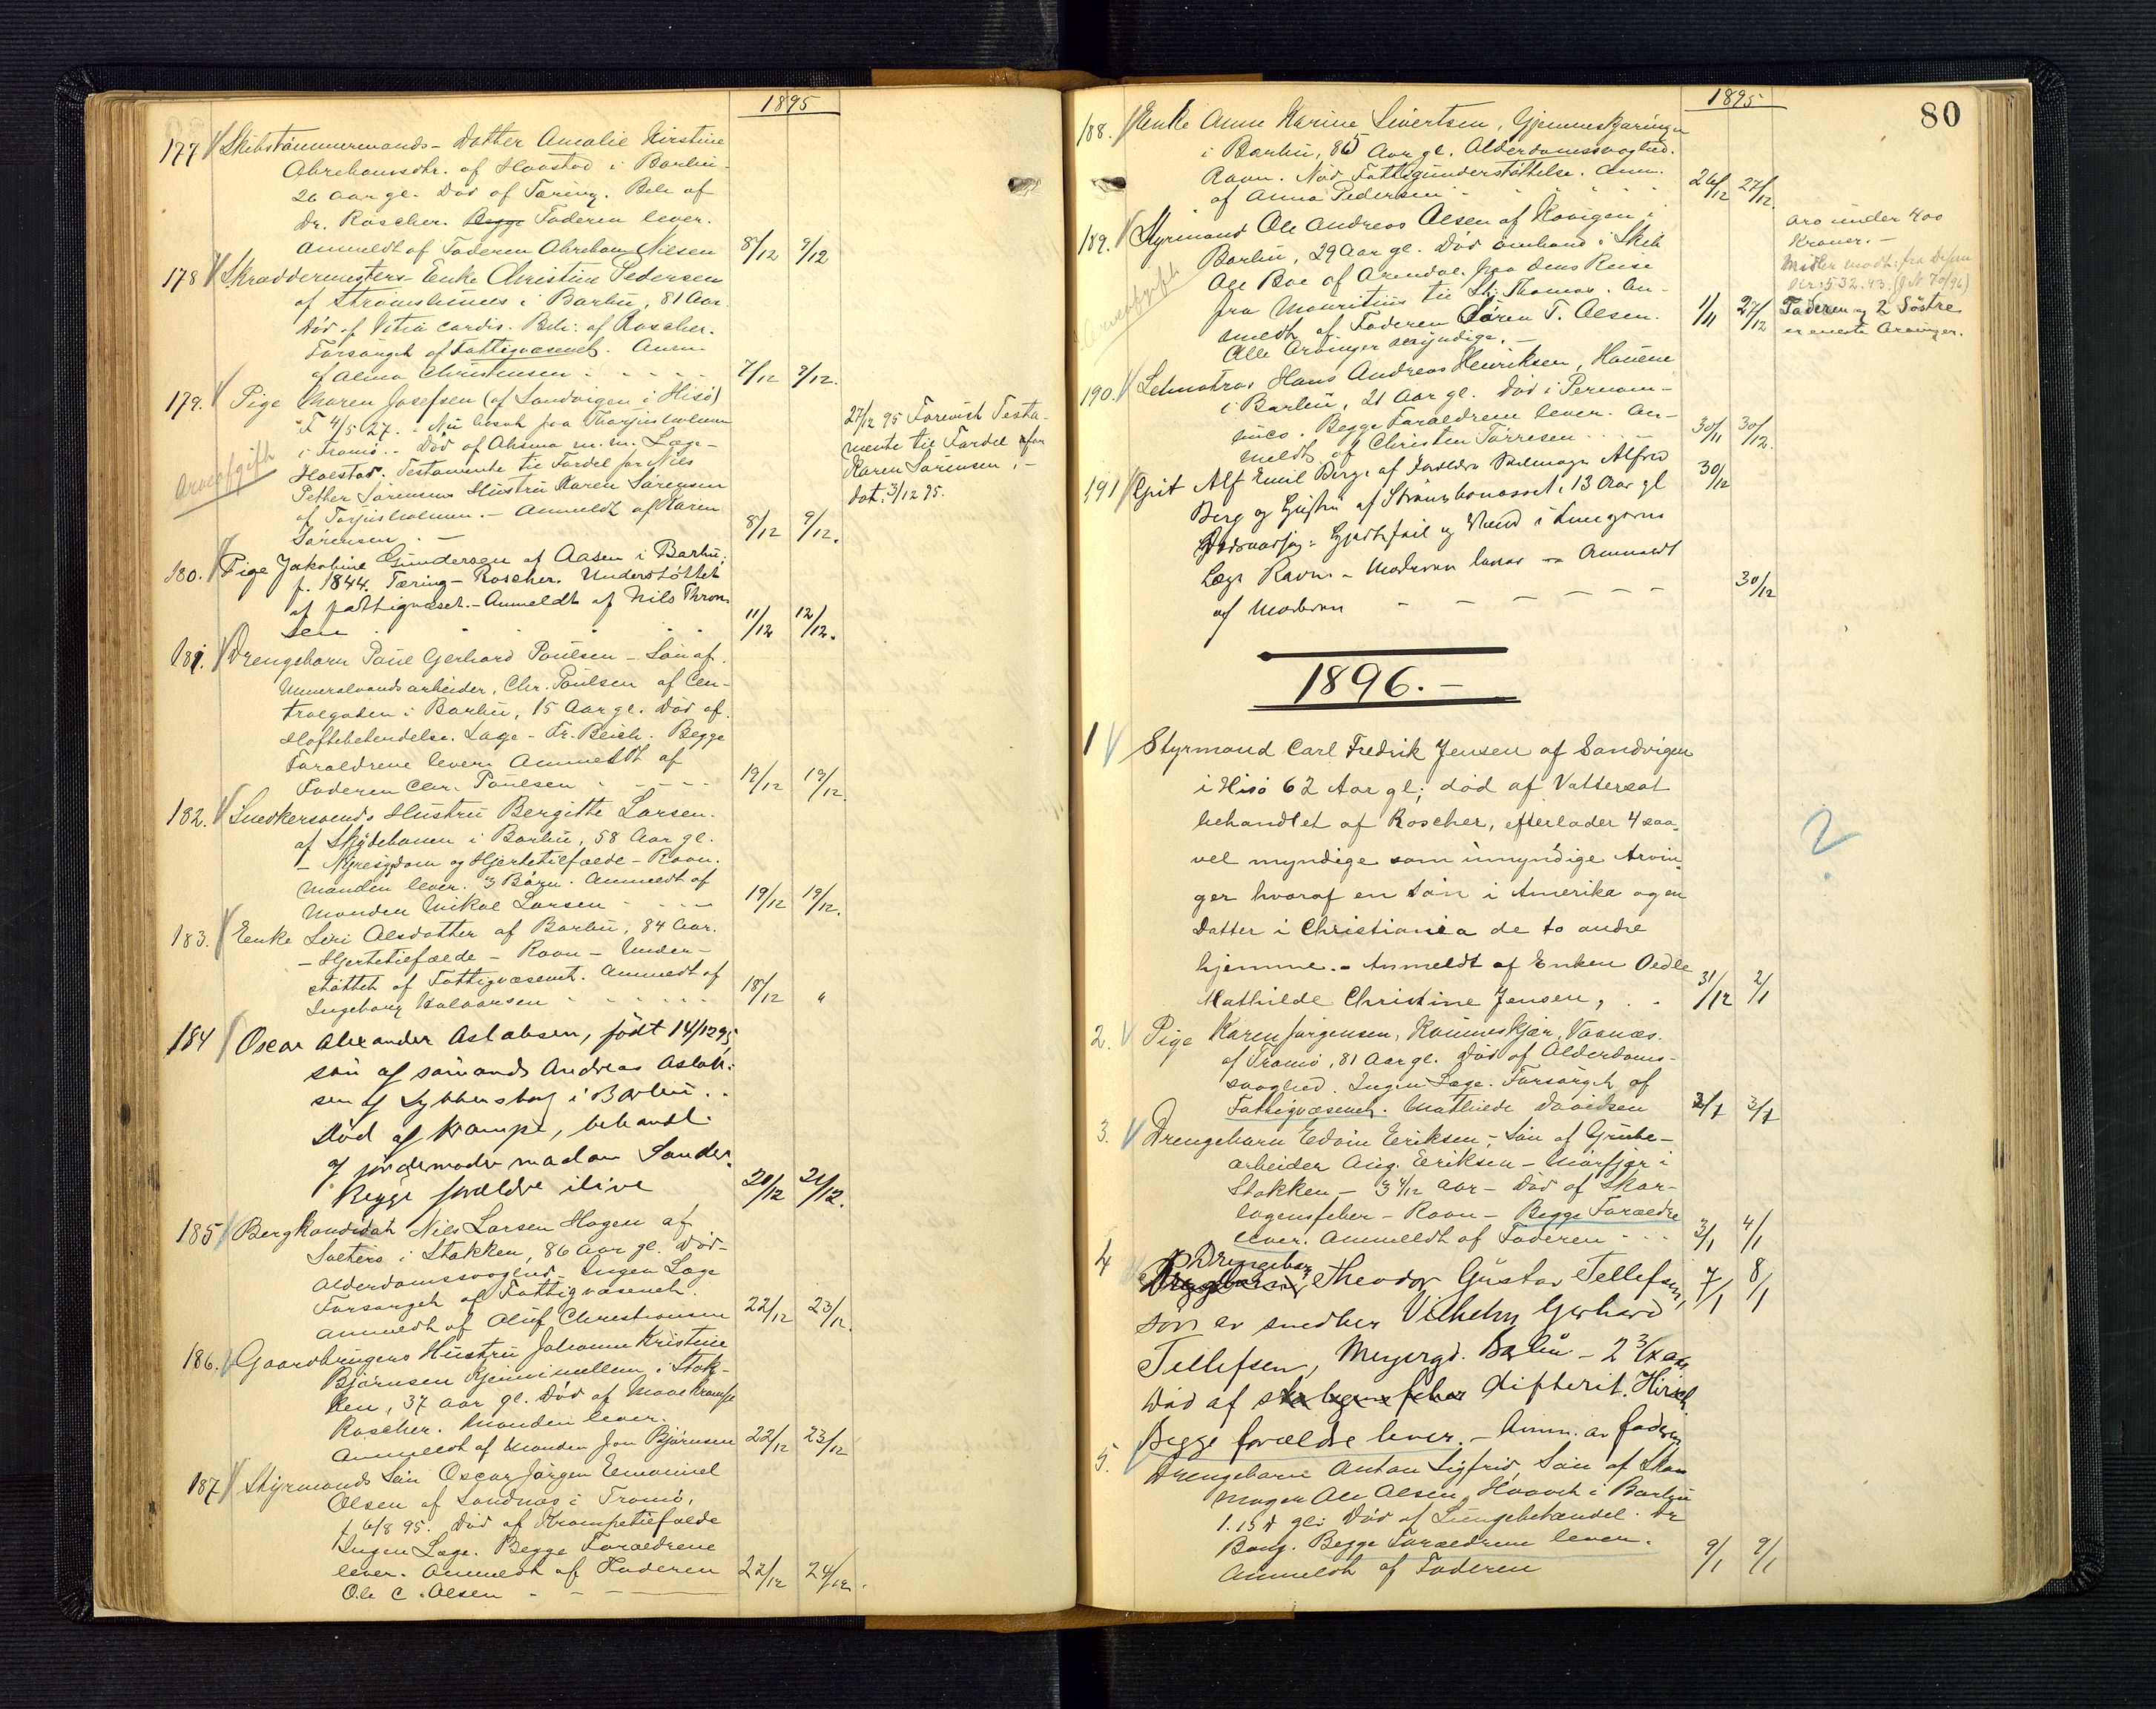 1895
177 Skibstømmermands-Datter Amalie Kirstine
Abrahamsdtr. af Haastad i Barbu
26 Aar gl. Død af Tæring. Beh. af
Dr. Roscher. Begge Faderen lever.
Anmeldt af Faderen Abraham Nilsen 8/12 9/12
178 Skræddermesters Enke Christine Pedersen
af Strømsbunes i Barbu, 81 Aar.
Død af Vitiu cordis. Beh: af Roscher.
Forsørget af Fattigvæsenet. Anm.
af Alma Christensen 7/12 9/12.
179. Pige Maren Josefsen (af Sandvigen i Hisø)
F 4/5 27. - Nu bosat paa Thorjusholmen
i Tromø. - Død af Athsma m.m. Læge -
Hoelstad. Testamente til Fordel for Nils
Petter Sørensens Hustru Karen Sørensen
af Torjusholmen. - Anmeldt af Karen
Sørensen - 8/12 9/12.
Arveafgift
27/12 95 Forevist Testa-
mente til Fordel for
Karen Sørensen, -
dat. 3/12 95.
180. Pige Jakobine Gundersen af Aasen i Barbu,
f. 1844. Tæring - Roscher. Understøttet
af fattigvæset. - Anmeldt af Nils Thron-
sen 11/12 12/12.
181. Drengebarn Paul Gerhard Poulsen - Søn af
Mineralvandsarbeider, Chr. Poulsen af Cen-
tralgaden i Barbu, 15 Aar gl. Død af
Hoftebetændelse. Læge - Fr. Beich. Begge
Forældrene lever. Anmeldt af
Faderen Chr. Poulsen 19/12 19/12.
182. Snedkersvends Hustru Bergitte Larsen
af Skydebanen i Barbu, 58 Aar gl.
- Nyresygdom og Hjertetilfælde - Ravn.
Manden lever. 3 Børn. Anmeldt af
Manden Mikal Larsen 19/12 19/12.
183. Enke Siri Olsdatter af Barbu, 84 Aar.
- Hjertetilfælde - Ravn - Under-
støttet af Fattigvæsenet. Anmeldt af
Ingeborg Halvorsen 18/12 "
184 Oscar Alexander Aslaksen, født 14/12 95,
søn af sømands Andreas Aslak-
sen af Lykkensborg i Barbu.
Død af krampe, behandl.
af jordemoder madam Sander.
Begge forældre ilive 20/12 21/12.
185 Bergkandidat Nils Larsen Hagen af
Salteriø i Stokken, 86 Aar gl. Død -
Alderdomssvaghed - Ingen Læge
Forsørget af Fattigvæsenet.
Anmeldt af Oluf Christensen 22/12 23/12.
186. Gaardbrugers Hustru Johanne Kristine
Bjørnsen Kjennimellem i Stok-
ken, 37 Aar gl. Død af Mavekrampe
Roscher. Manden lever.
Anmeldt af Manden Jon Bjørnsen 22/12 23/12
187 Styrmands Søn Oscar Jørgen Emanuel
Olsen af Sandnæs i Tromø,
f 6/8 95. Død af Krampetilfælde
Ingen Læge. Begge Forældrene
lever. Anmeldt af Faderen
Ole C. Olsen - - 22/12 24/12.
1895
80
188. Enke Anne Karine Sivertsen, Gjennemskjæringen
i Barbu, 85 Aar gl. Alderdomssvaghed.
Ravn. Nød Fattigunderstøttelse. Anm.
af Anna Pedersen 26/12 27/12.
189. Styrmand Ole Andreas Olsen af Kavigen i
Barbu, 29 Aar gl. Død ombord i Skib
Age Boe af Arendal paa dens Reise
fra Mauritius til St. Thomas. An-
meldt af Faderen Søren T. Olsen. 1/11 27/12
Alle Arvinger myndige. -
Arveafgift
Arv under 400
Kroner. -
Midler modt. fra
532.43. (J.N 70/96)
Faderen og 2 Søstre
er eneste Arvinger.
190. Letmatros Hans Andreas Henriksen, Havene
i Barbu, 21 Aar gl. Død i Pernam-
buco. Begge Forældrene lever. An-
meldt af Christen Tørresen. 30/11 30/12.
191 Gut Alf Emil Berg af Forældre Alfred 30/12
Berg og Hustru af Strømsbonæsset, 13 Aar gl
Dødsaarsag: Hjertefeil og Vand i Lungerne
Læge Ravn - Moderen lever - Anmeldt
af Moderen - - - - - - 30/12
1896. -
1 Styrmand Carl Fredrik Jensen af Sandvigen
i Hisø 62 Aar gl; død af Vattersot
behandlet af Roscher, efterlader 4 saa-
vel myndige som umyndige Arvin-
ger hvoraf en Søn i Amerika og en
Datter i Christiania de to andre
hjemme. - Anmeldt af Enken Oedle
Mathilde Christine Jensen, 31/12 2/1
?
2. Pige Karen Jørgensen, Ravneskjær, Vaagnæs
af Tromø, 81 Aar gl. Død af Alderdoms-
svaghed. Ingen Læge. Forsørget af
Fattigvæsenet. Mathilde Davidsen 3/1 3/1
3. Drengebarn Edvin Eriksen - Søn af Grube-
arbeider Aug. Eriksen - Mørfjær i
Stokken - 3 4/12 Aar - Død af Skar-
lagensfeber - Ravn - Begge Forældre
lever. Anmeldt af Faderen - - - 3/1 4/1
4 Drengebarn Theodor Gustav Tellefsen, 7/1 8/1
søn av snedker Vilhelm Gerhard
Tellefsen, Meyergd. Barbu - 2 3/12 aar.
Død af skarlagensfeber difterit. Hirsch
Begge forældre lever. - Anm. av faderen
5. Drengebarn Anton Sigfrid, Søn af Sko-
mager Ole Olsen, Haavet i Barbu
1.15 d gl: Død af Lungebetændel. Dr
Bang. Begge Forældrene lever.
Anmeldt af Faderen 9/1 9/1